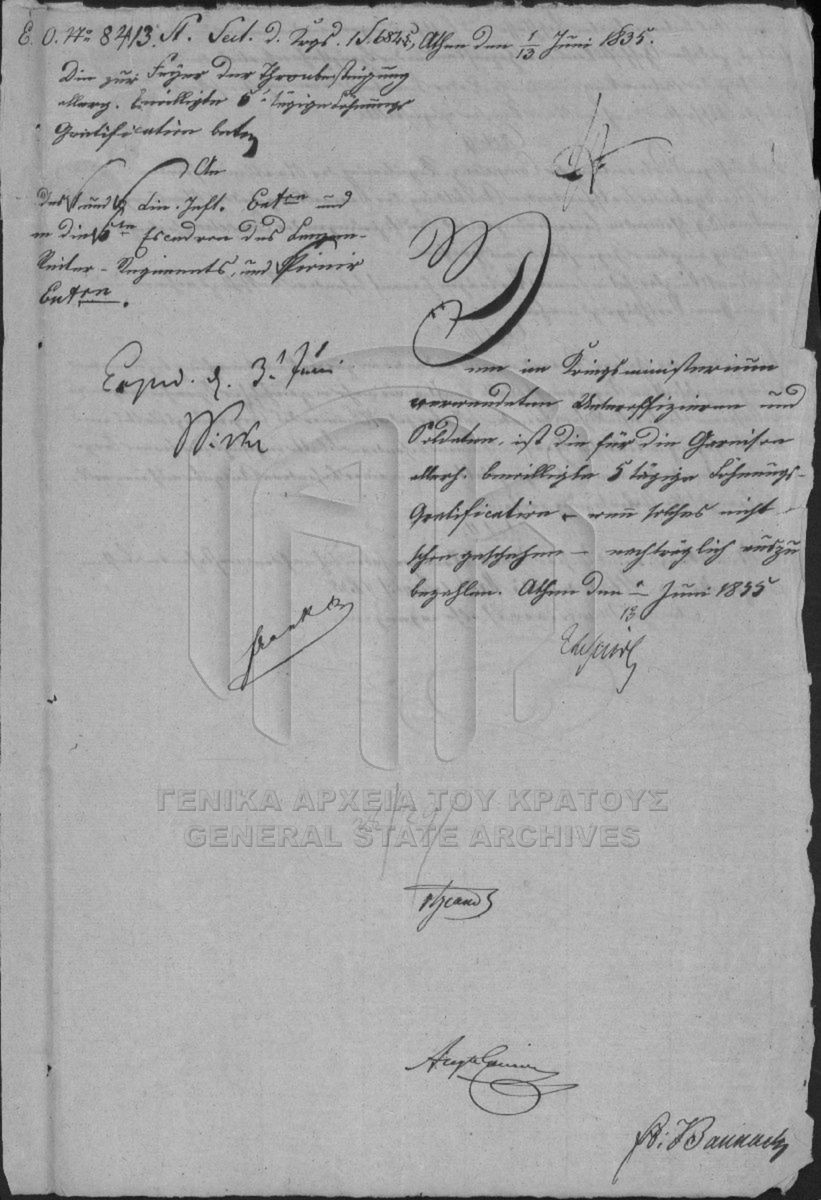 E. O. No 8413. St. Sect. d. Krgs. Athen den 1/13 Juni 1835.
Die zur Feyer der Thronbesteigung
allerg. bewilligte 5 tägige Löhnungs
Gratification betr
An
das und Lin. Inft. Baton und
an die Escadron des Lanzen-
Reiter-Regiments, und Pionir
Baton.
Exped. d. 3. Juni
Dem im Kriegsministerium
verwendeten Unteroffizieren und
Soldaten, ist die für die Garnison
allerh. bewilligte 5 tägige Löhnungs-
Gratification - wenn solches nicht
schon geschehen - nachträglich auszu
bezahlen. Athen den 1/13 Juni 1835
ΓΕΝΙΚΑ ΑΡΧΕΙΑ ΤΟΥ ΚΡΑΤΟΥΣ
GENERAL STATE ARCHIVES